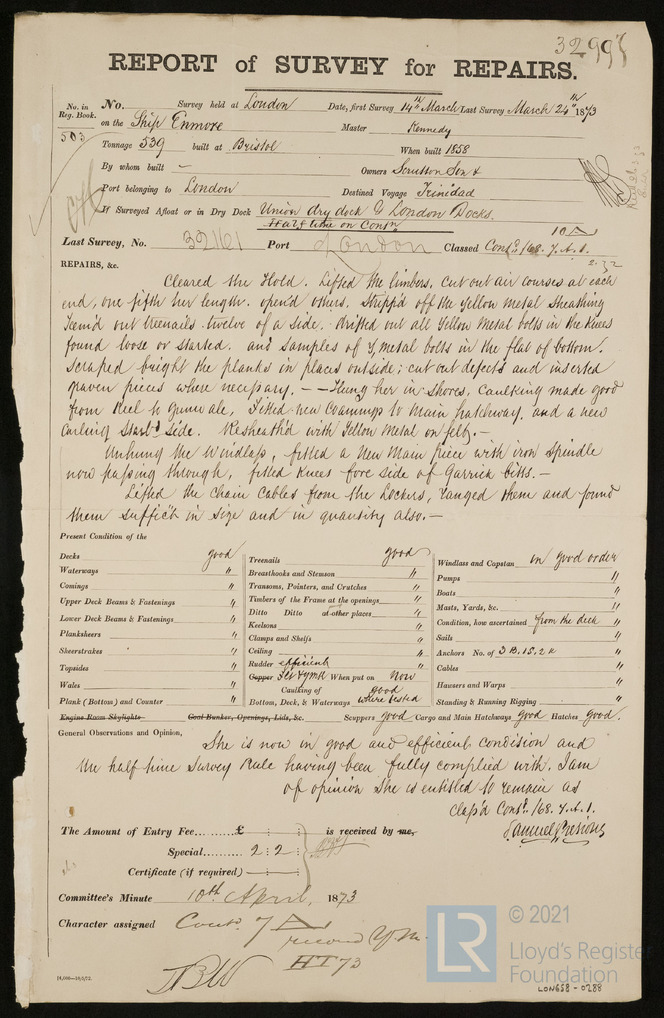 32998
REPORT of SURVEY for REPAIRS.
No. in Reg. Book. 503
No. Survey held at London Date, first Survey 14th March Last Survey March 24th 1873
on the Ship Enmore Master Kennedy
Tonnage 539 built at Bristol When built 1858
By whom built – Owners Scrutton Son &
Port belonging to London Destined Voyage Trinidad
If Surveyed Afloat or in Dry Dock Union dry dock & London Docks.
Half time on Contn
Last Survey, No. 32161 Port London Classed Contd. /68. 7. A. 1.
REPAIRS, &c.
Cleared the Hold. Lifted the limbers, cut out air courses at each
end, one fifth her length. open'd others. Stripp'd off the yellow metal sheathing
Teem'd out treenails twelve of a side. drifted out all Yellow Metal bolts in the knees
found loose or started. and samples of Y, metal bolts in the flat of bottom.
Scraped bright the planks in places outside; cut out defects and inserted
graven pieces where necessary. – – Hung her in shores, caulking made good
from keel to gunwale, Fitted new coamings to main hatchway. and a new
carling Starbd side. Resheath'd with Yellow metal on felt. –
Unhung the Windlass, fitted a New Main piece with iron spindle
now passing through, fitted knees fore side of Garrick bitts. –
Lifted the chain cables from the Lockers, ranged them and found
them suffict in size and in quantity also. –
Present Condition of the
Decks good
Waterways "
Comings "
Upper Deck Beams & Fastenings "
Lower Deck Beams & Fastenings "
Planksheers "
Sheerstrakes "
Topsides "
Wales "
Plank (Bottom) and Counter "
Treenails good
Breasthooks and Stemson "
Transoms, Pointers, and Crutches "
Timbers of the Frame at the openings "
Ditto Ditto at other places "
Keelsons "
Clamps and Shelfs "
Ceiling "
Rudder efficient "
Copper When put on Now
Caulking of good
Bottom, Deck, & Waterways where tested
Windlass and Capstan in good order
Pumps "
Boats "
Masts, Yards, &c. "
Condition, how ascertained from the deck
Sails "
Anchors No. of 3 B. 1 S. 2 K "
Cables "
Hawsers and Warps "
Standing & Running Rigging "
Engine Room Skylights Coal Bunker, Openings, Lids, &c. Scuppers good Cargo and Main Hatchways good Hatches good.
General Observations and Opinion,
She is now in good and efficient condition and
the half time Survey Rule having been fully complied with, I am
of opinion she is entitled to remain as
Class'd Contd. /68. 7. A. 1.
The Amount of Entry Fee...... £ : : is received by me,
Special...... 2 : 2 :
Certificate (if required) : :
Committee's Minute 10th April, 1873
Character assigned Contd. 7 A
record Y.M.
HT 73
© 2021
LR
Lloyd's Register
Foundation
LON658-0288